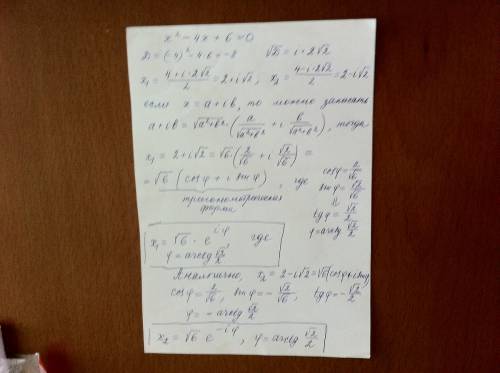 x² - 4x + 6 = 0
D = (-4)² - 4·6 = -8   √D = i·2√2
x₁ = (4 + i·2√2)/2 = 2 + i√2, x₂ = (4 - i·2√2)/2 = 2 - i√2
если x = a + ib, то можно записать
a + ib = √(a²+b²) · (a/√(a²+b²) + i b/√(a²+b²)), тогда
x₁ = 2 + i√2 = √6 (2/√6 + i √2/√6) =
= √6 (cosφ + i sinφ), где
тригонометрическая
форма
cosφ = 2/√6
sinφ = √2/√6
⇓
tgφ = √2/2
φ = arctg √2/2
x₁ = √6 · e^{iφ} где
φ = arctg √2/2
Аналогично, x₂ = 2 - i√2 = √6 (cosφ + i sinφ)
cosφ = 2/√6, sinφ = - √2/√6, tgφ = - √2/2
φ = - arctg √2/2
x₂ = √6 e^{-iφ}, φ = arctg √2/2